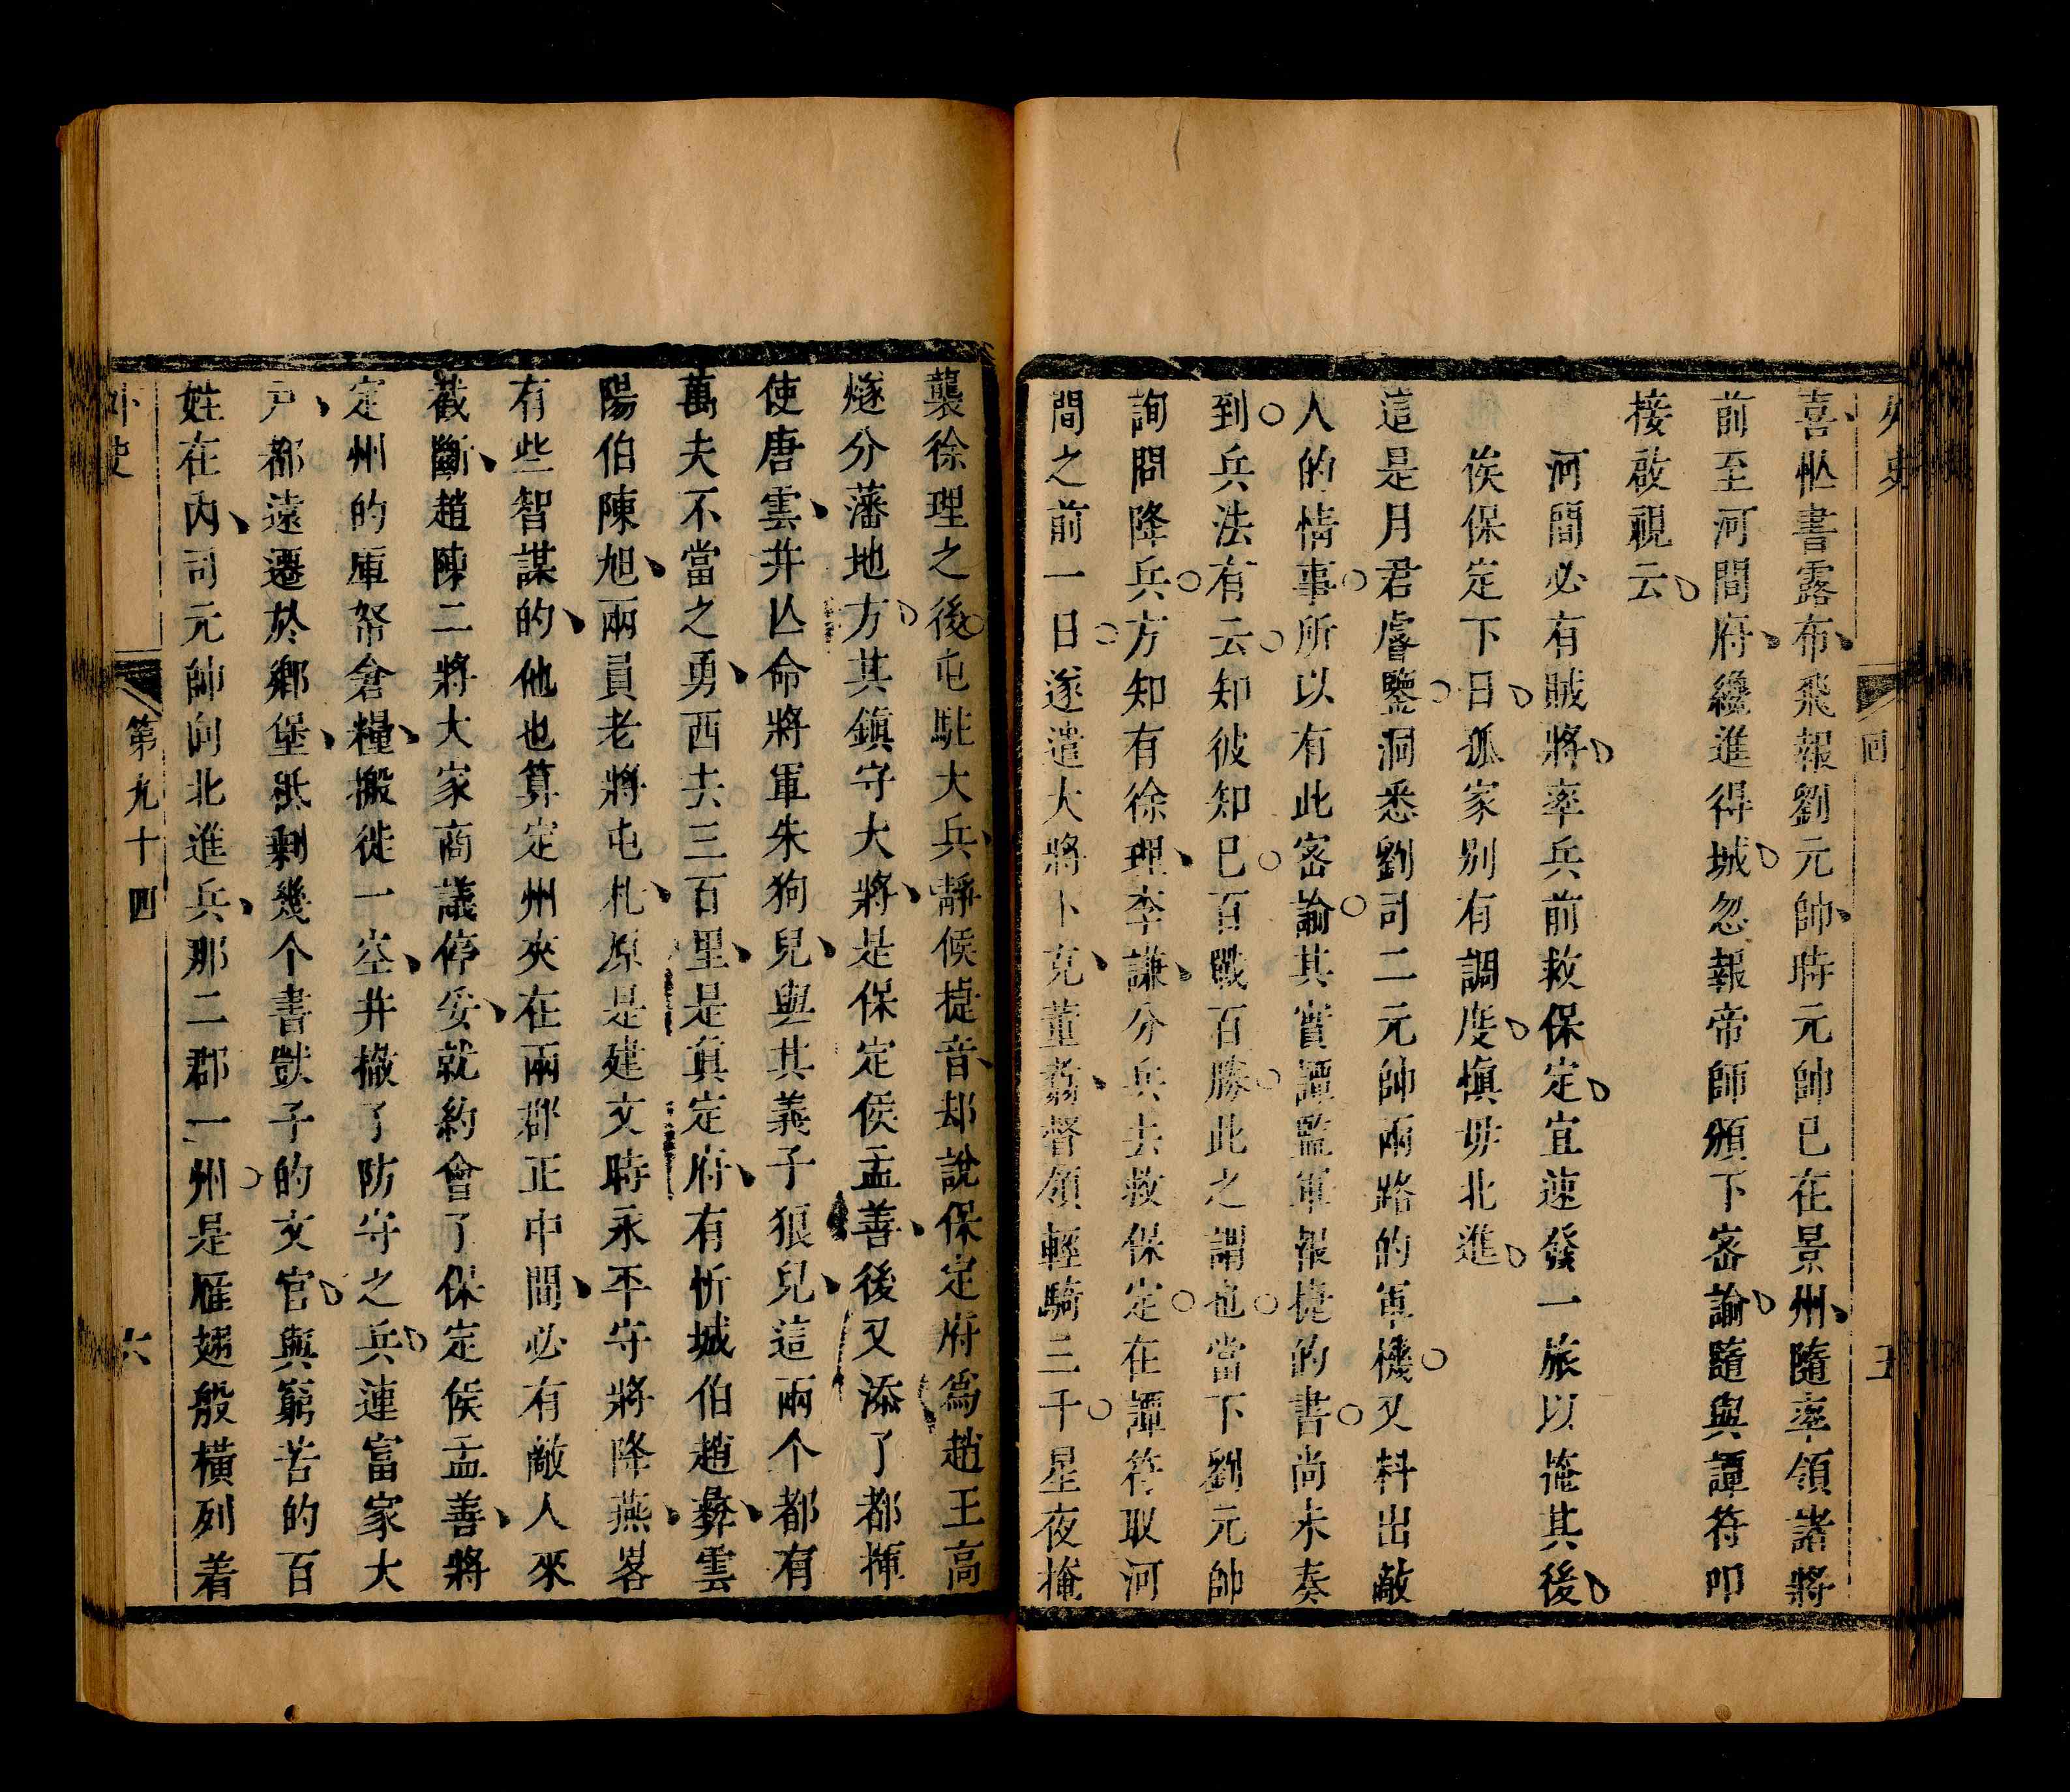 外史
回
五
喜忙書露布飛報劉元帥時元帥已在景州隨率領諸將
前至河間府纔進得城忽報帝師頒下密諭隨與譚符叩
接啟視云
河間必有賊將率兵前救保定宜速發一旅以淹其後
俟保定下日孤家别有調度愼毋北進
這是月君睿鑒洞悉劉司二元帥兩路的軍機又料出敵
人的情事所以有此密諭其實譚監軍報捷的書尚未奏
到兵法有云知彼知已百戰百勝此之謂也當下劉元帥
詢問降兵方知有徐理李謙分兵去救保定在譚符取河
間之前一日遂遣大將卜克董翥督領輕騎三千星夜掩
襲徐理之後屯駐大兵靜候捷音却說保定府爲趙王高
燧分藩地方其鎮守大將是保定侯孟善後又添了都揮
使唐雲并亾命將軍朱狗兒與其義子狼兒這兩个都有
萬夫不當之勇西去三百里是眞定府有忻城伯趙彝雲
陽伯陳旭兩員老將屯札原是建文時永平守將降燕畧
有些智謀的他也算定州夾在兩郡正中間必有敵人來
截斷趙陳二將大家商議停妥就約會了保定侯孟善將
定州的庫帑倉糧搬徙一空并撤了防守之兵連富家大
戸都遠遷於鄉堡秪剩幾个書獃子的文官與窮苦的百
姓在內司元帥向北進兵那二郡一州是雁翅般橫列着
外史
第九十四
六